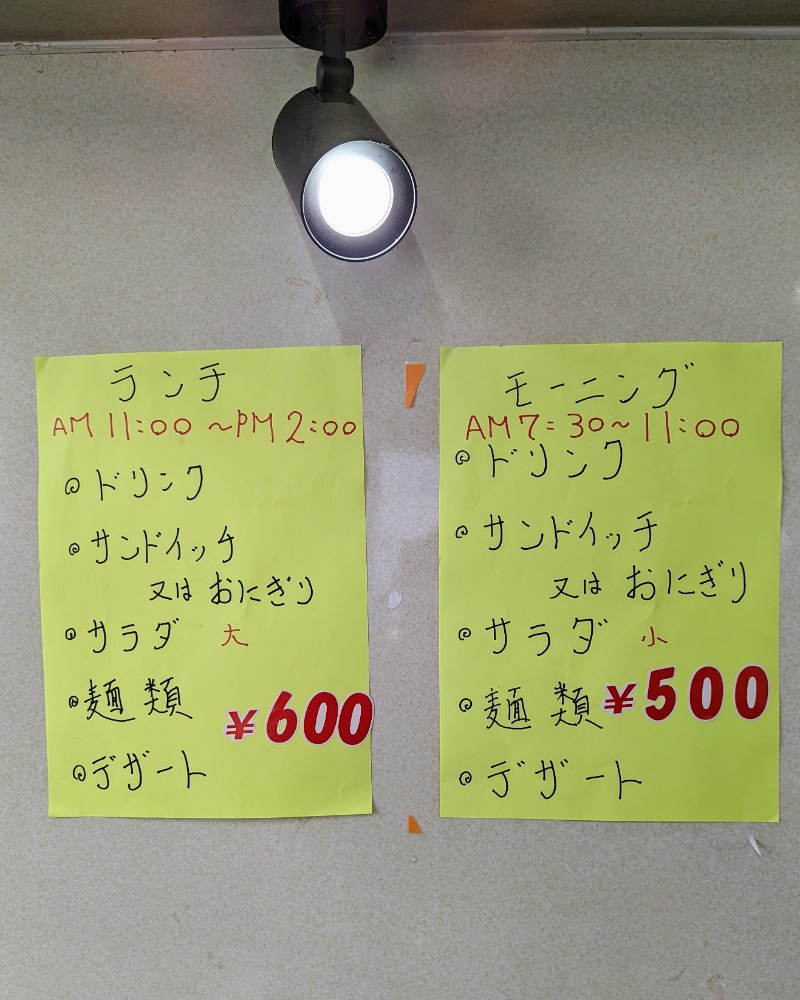 ランチ
AM 11:00 ~PM 2:00
◎ドリンク
◎サンドイッチ
又は おにぎり
◎サラダ 大
◎麺類
¥600
◎デザート
モーニング
AM 7:30~11:00
◎ドリンク
◎サンドイッチ
又は おにぎり
◎サラダ 小
◎麺類 ¥500
◎デザート